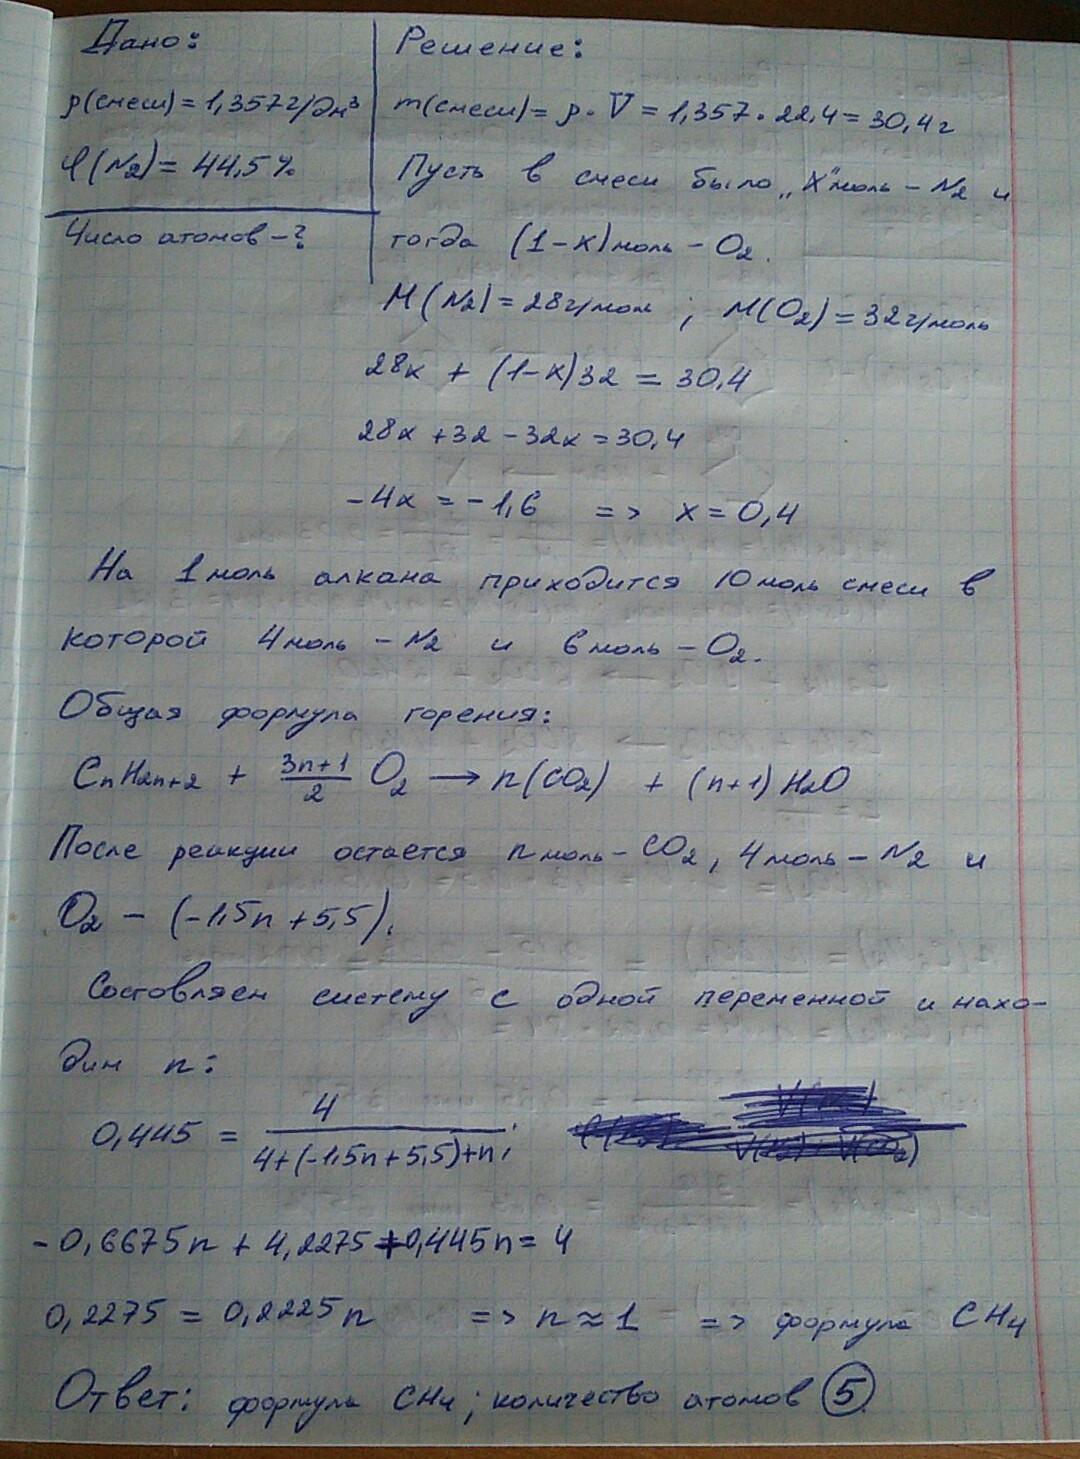 Дано:
Решение:
ρ(смеси) = 1,357 г/дм³
m(смеси) = ρ · V = 1,357 · 22,4 = 30,4 г
φ(N₂) = 44,5 %
Пусть в смеси было „X" моль – N₂ и
Число атомов – ?
тогда (1 – x) моль – O₂.
M(N₂) = 28 г/моль ; M(O₂) = 32 г/моль
28x + (1–x)32 = 30,4
28x + 32 – 32x = 30,4
–4x = –1,6 => x = 0,4
На 1 моль алкана приходится 10 моль смеси в
которой 4 моль – N₂ и 6 моль – O₂.
Общая формула горения:
CnH2n+2 + (3n+1)/2 O₂ → n(CO₂) + (n+1) H₂O
После реакции остается n моль – CO₂, 4 моль – N₂ и
O₂ – (–1,5n + 5,5).
Составляем систему с одной переменной и нахо-
дим n:
0,445 = 4/(4+(–1,5n+5,5)+n);
–0,6675n + 4,2275 + 0,445n = 4
0,2275 = 0,2225n => n ≈ 1 => формула CH₄
Ответ: формула CH₄; количество атомов 5